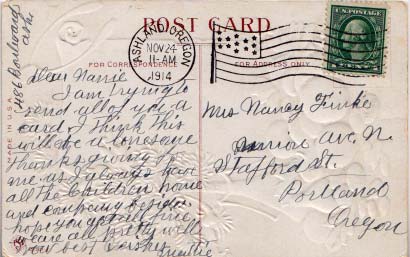 POST CARD
FOR CORRESPONDENCE
FOR ADDRESS ONLY
MADE IN U.S.A.
ASHLAND, OREGON
NOV 24
11-AM
1914
U.S. POSTAGE
Boulevard
Ash
Dear Nannie
I am trying to
send all of you a
card I think this
will be a lonesome
thanksgiving to
me as I always have
all the Children home
and company besides
hope you get all fine
we are all pretty well
love best wishes
Mrs Nancy Finke
Union Ave. N.
Stafford St.
Portland
Oregon